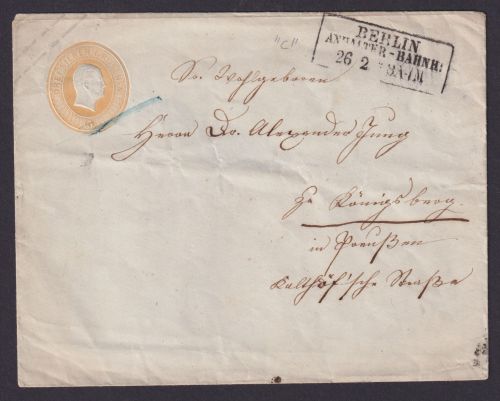 "C"
BERLIN
ANHALTER-BAHNH:
26 2
Sr. Wohlgeboren
Herrn Dr. Alexander Jung
zu Königsberg.
in Preußen
Kalthöf'sche Straße